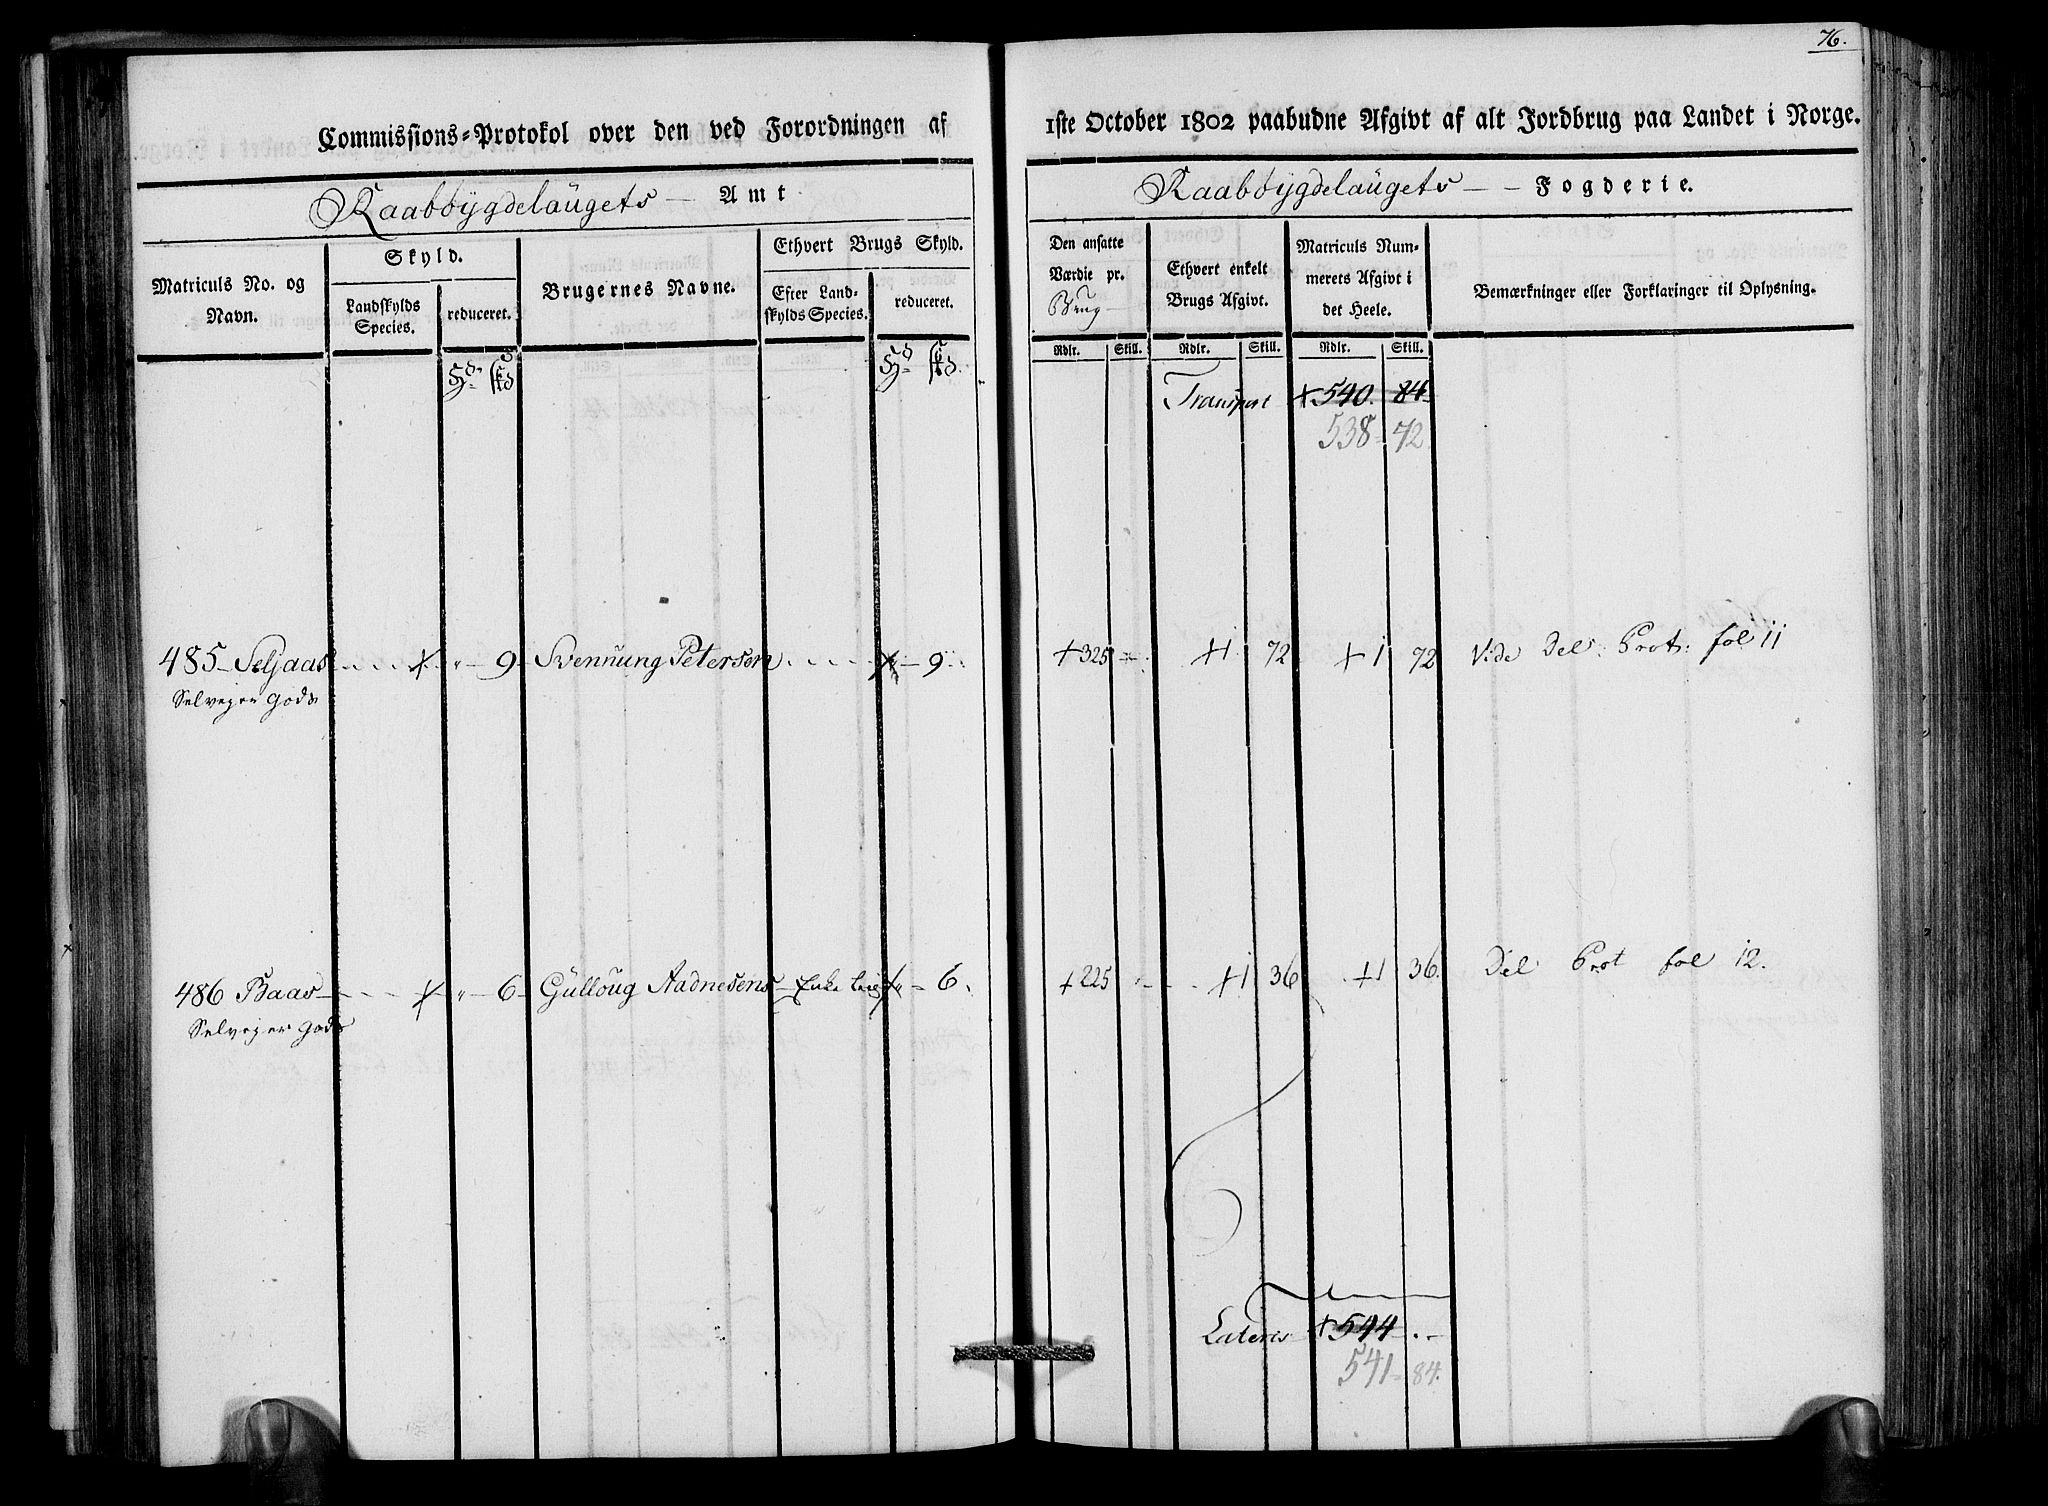 76.
Commissions-Protokol over den ved Forordningen af 1ste October 1802 paabudne Afgivt af alt Jordbrug paa Landet i Norge.
Raabøygdelaugets — Amt
Raabøygdelaugets — — Fogderie.
Matriculs No. og Navn.
Skyld.
Landskylds Species.
reduceret.
Brugernes Navne.
Ethvert Brugs Skyld.
Efter Landskylds Species.
reduceret.
Den ansatte Værdie pr. Brug
Ethvert enkelt Brugs Afgivt.
Matriculs Nummerets Afgivt i det Heele.
Bemærkninger eller Forklaringer til Oplysning.
Rdlr. Skill. Rdlr. Skill. Rdlr. Skill.
Transport +540. 84
538 - 72
485 - Seljaas - - - - + " - 9 - Svennung Petersen - - - - - 9 + 325 - +1 72 +1 72 Vide Del: Prot: fol 11
Selvejer Gods
486 Baas - - - - + " - 6 - Gülloug Aadnesens - Enke - 6. + 225 " - - +1 36 +1 36. Del Prot fol 12.
Selvejer Gods
Lateris +544 . -
541 - 84.